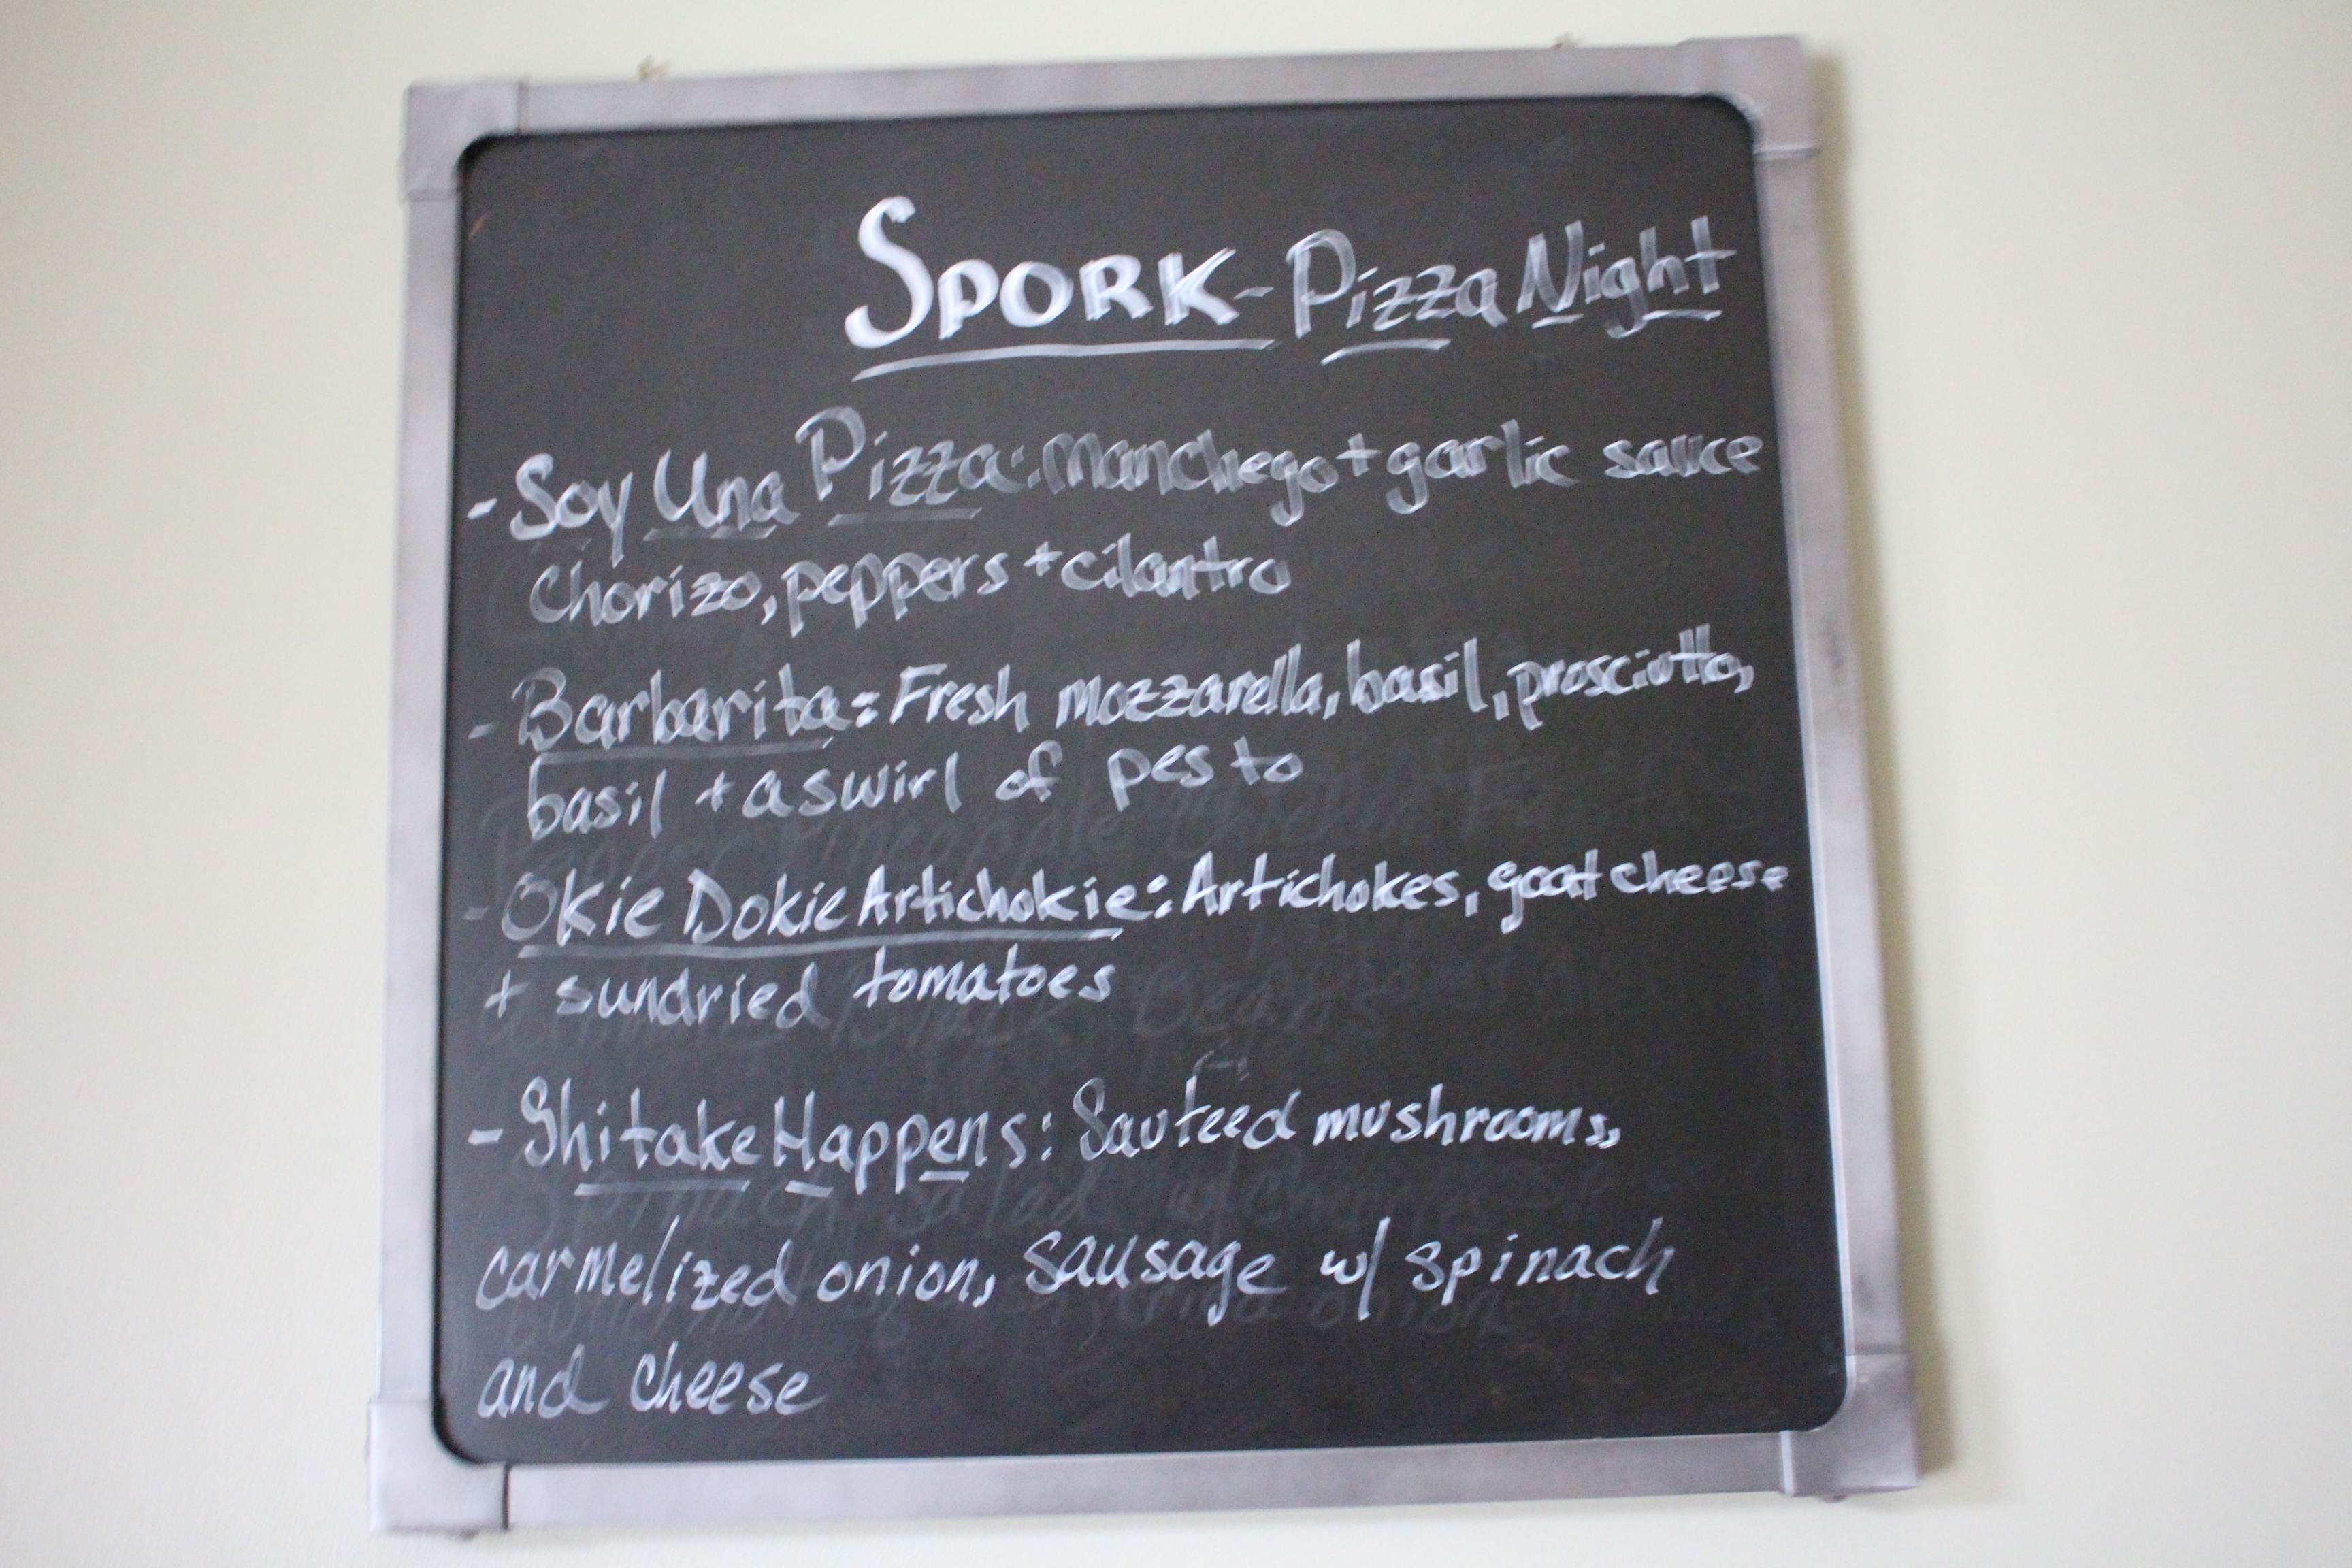 SPORK - Pizza Night
- Soy Una Pizza: Manchego + garlic sauce
Chorizo, peppers + cilantro
- Barbarita: Fresh mozzarella, basil, prosciutto,
basil + a swirl of pesto
- Okie Dokie Artichokie: Artichokes, goat cheese
+ sundried tomatoes
- Shitake Happens: Sauteed mushrooms,
carmelized onion, sausage w/ spinach
and cheese